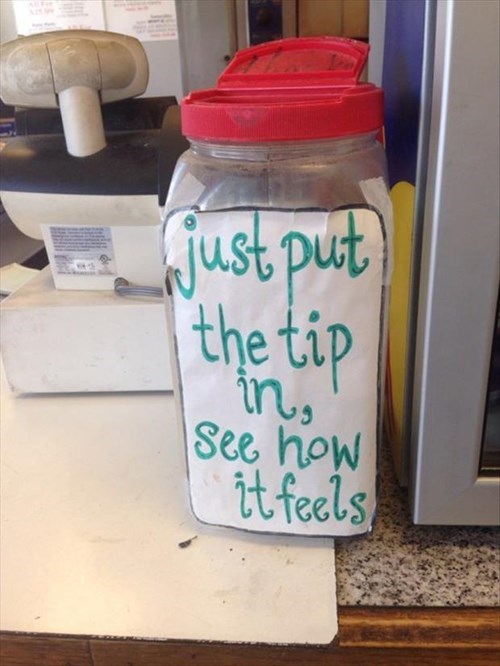 just put
the tip
in,
see how
it feels